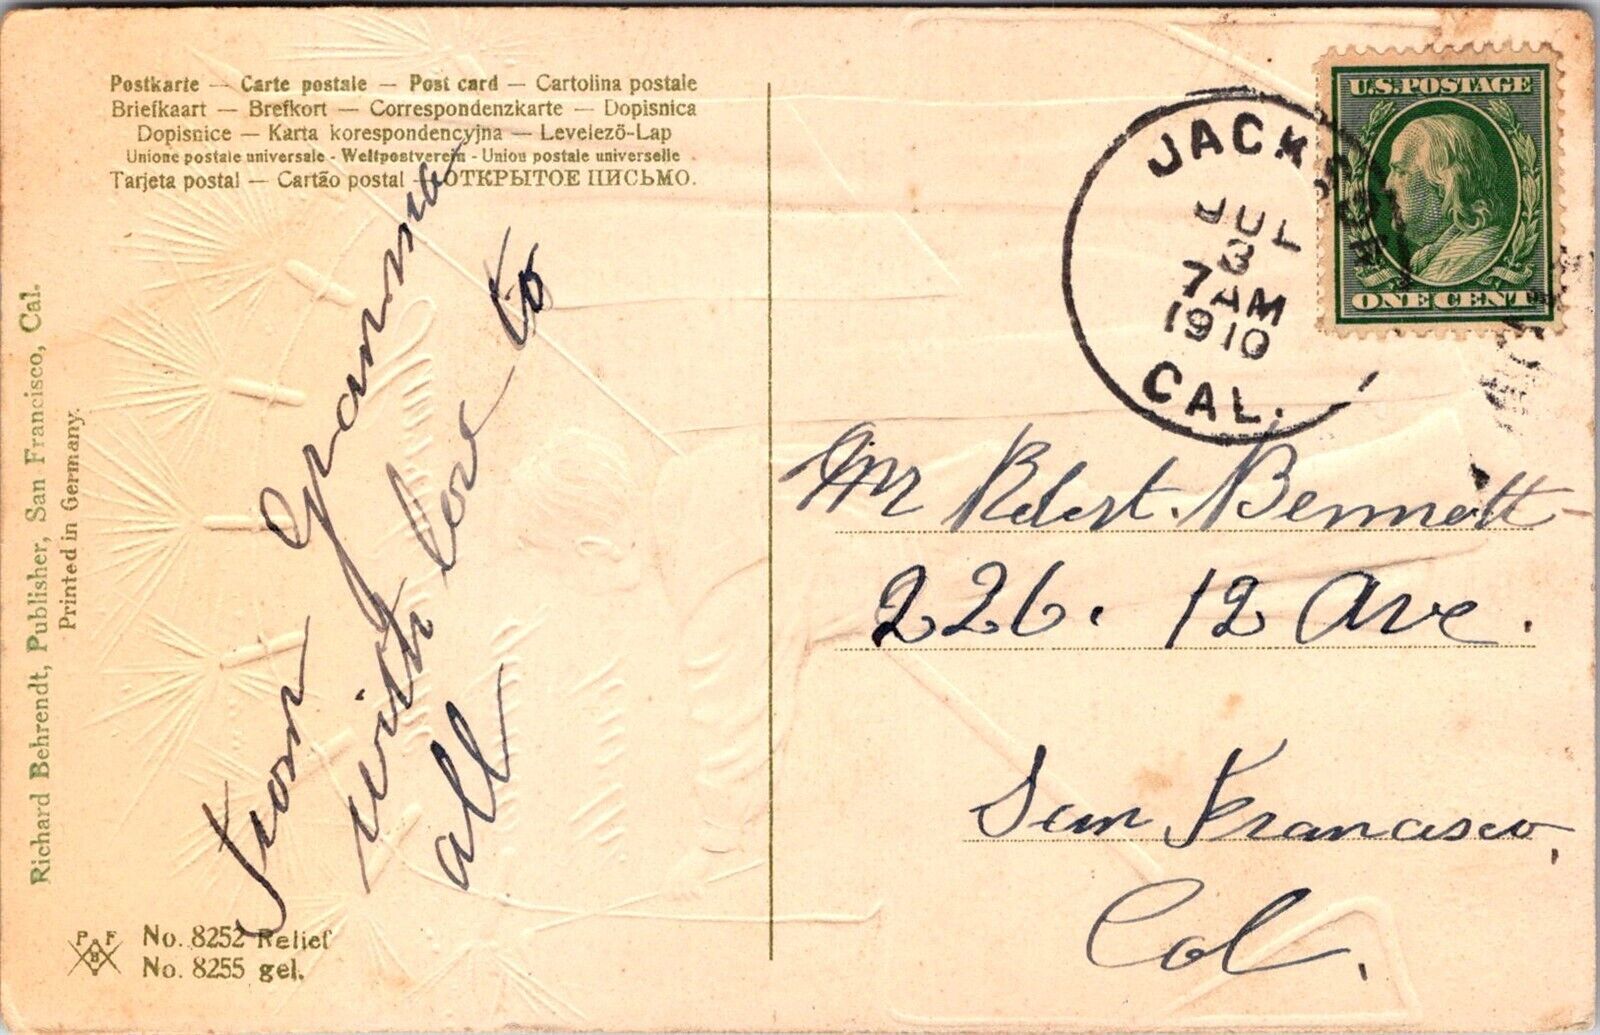 Postkarte — Carte postale — Post card — Cartolina postale
Briefkaart — Brefkort — Correspondenzkarte — Dopisnica
Dopisnice — Karta korespondencyjna — Levelező-Lap
Unione postale universale - Weltpostverein - Union postale universelle
Tarjeta postal — Cartão postal — ОТКРЫТОЕ ПИСЬМО.
Richard Behrendt, Publisher, San Francisco, Cal.
Printed in Germany.
From Gramma
with love to
all
P F
B
No. 8252 Relief
No. 8255 gel.
JACKSON
JUL
3
7 AM
1910
CAL.
U.S. POSTAGE
ONE CENT
Mr Robert. Bennett
226. 12 Ave.
San Francisco,
Cal.